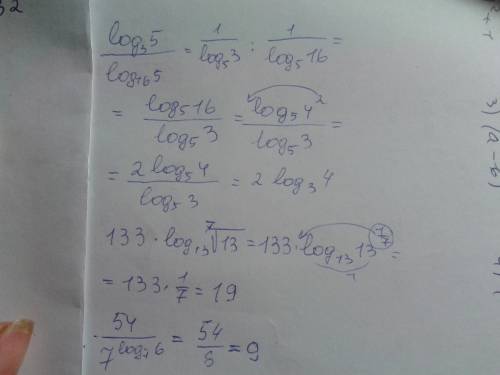 32
log₃5 / log₁₆5 = 1 / log₅3 : 1 / log₅16 =
= log₅16 / log₅3 = log₅4² / log₅3 =
= 2 log₅4 / log₅3 = 2 log₃4
133 · log₁₃ ⁷√13 = 133 · log₁₃ 13^(1/7) =
1
= 133 · 1/7 = 19
54 / 7^(log₇6) = 54 / 6 = 9
3) (a-b)